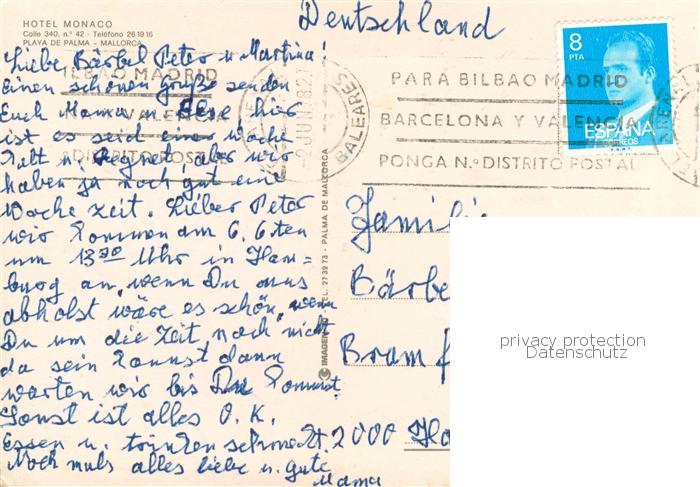 HOTEL MONACO
Calle 340, n.º 42 - Teléfono 26 19 16
PLAYA DE PALMA - MALLORCA
Deutschland
8
PTA
ESPAÑA
CORREOS
PARA BILBAO MADRID
BARCELONA Y VALENCIA
PONGA N.º DISTRITO POSTAL
BALEARES
BILBAO MADRID
VALENCIA
DISTRITO POSTAL
Liebe Bärbel Peter u. Martina!
Einen schönen größe senden
Euch Mama u. hier
ist es seid einer Woche
kalt u. Regnet, aber wir
haben ja noch gut eine
Woche Zeit. Lieber Peter
wir kommen am 6. 6ten
um 13 00 Uhr in Ham=
burg an, wenn Du uns
abholst wäre es schön, wenn
Du um die Zeit noch nicht
da sein kannst dann
warten wir bis Du kommst.
Sonst ist alles O. K.
Essen u. trinken schmeckt.
Noch mals alles liebe u. gute
Mama
IMAGEN - TEL. 27 39 73 - PALMA DE MALLORCA
Familie
Bärbe
Bramf
2000 Ha
privacy protection
Datenschutz